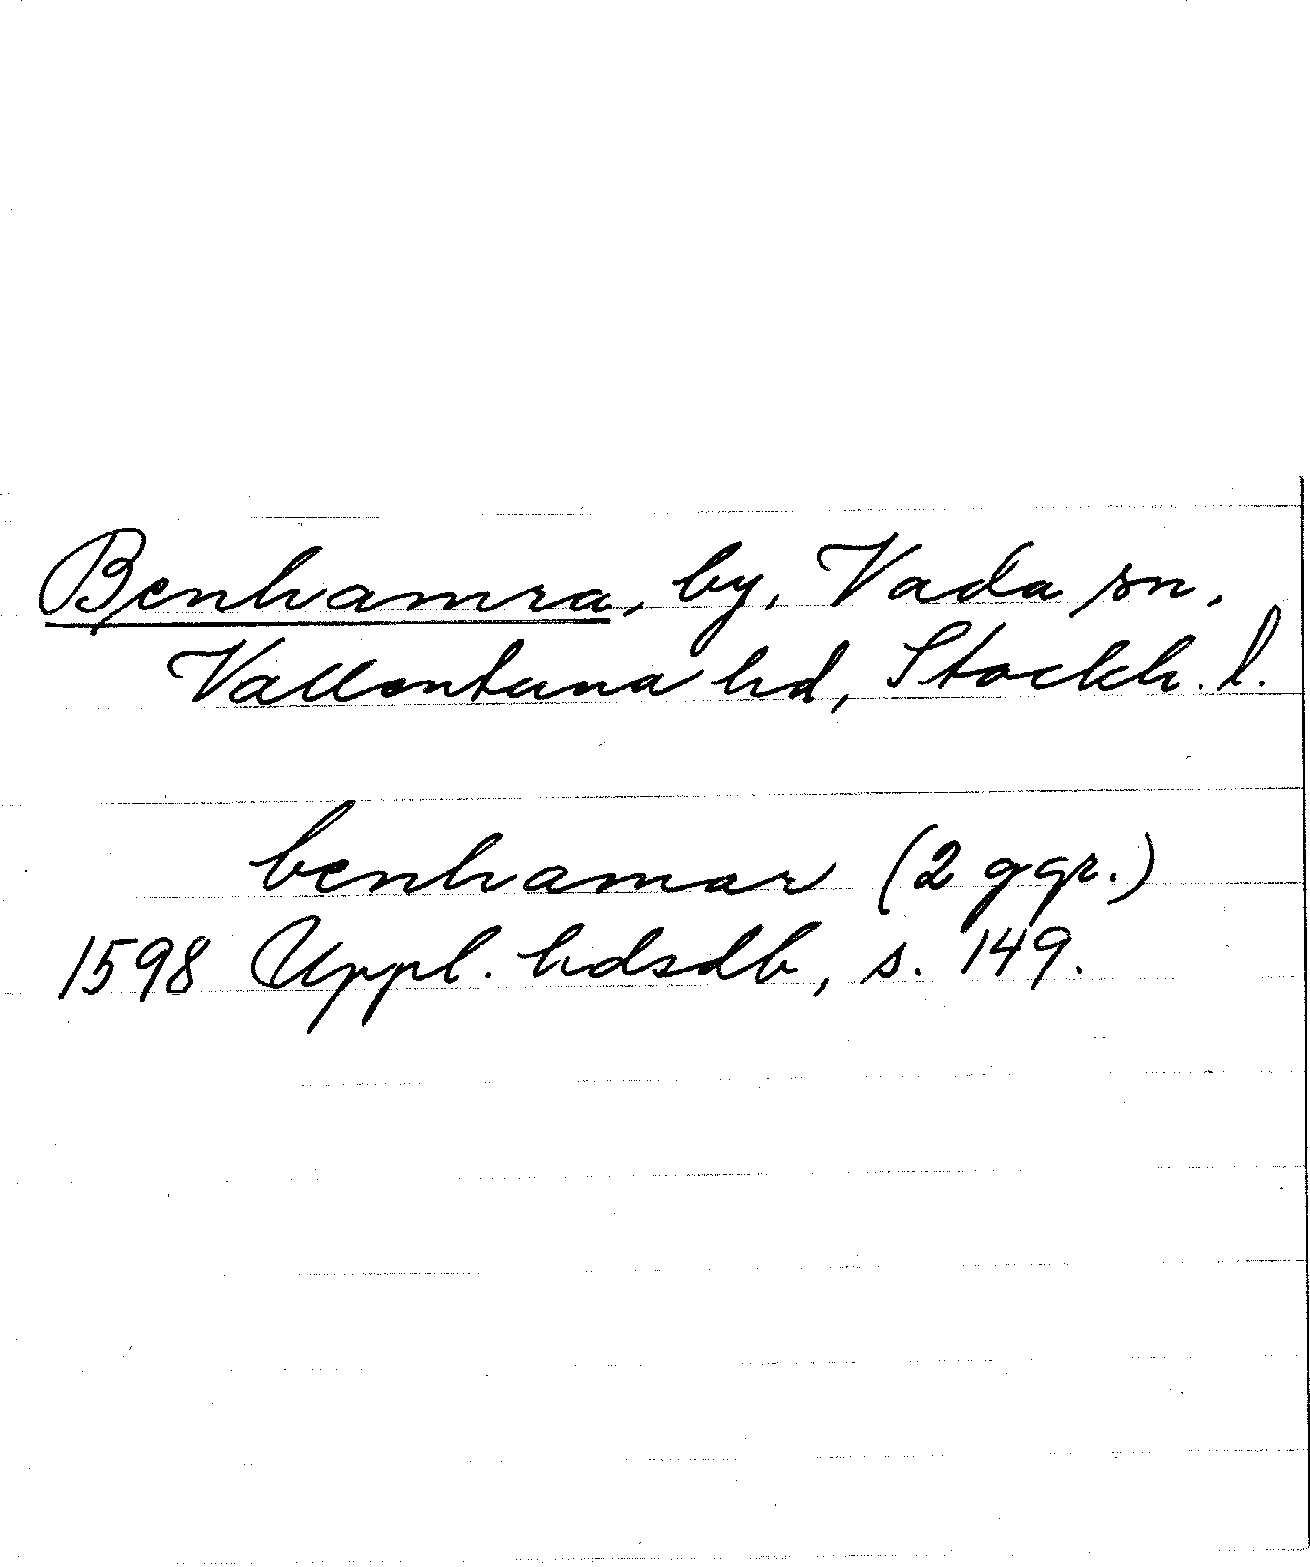 Benhamra, by, Vada sn,
Vallentuna hd, Stockh. l.
benhamar (2 ggr.)
1598 Uppl. hdsdb, s. 149.